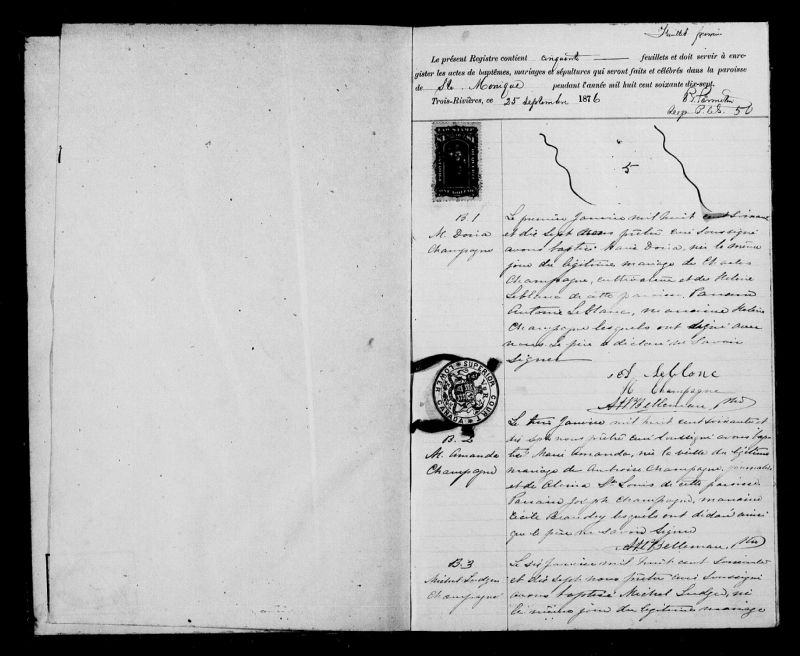 Feuillet premier
Le présent Registre contient cinquante feuillets et doit servir à enre-
gister les actes de baptêmes, mariages et sépultures qui seront faits et célébrés dans la paroisse
de Ste Monique pendant l'année mil huit cent soixante dix-sept.
Trois-Rivières, ce 25 septembre 1876
50
5
B. 1
M. Doria
Champagne
Le premier Janvier mil huit cent soixante
et dix sept nous prêtre curé soussigné
avons baptisé Marie Doria, née le même
jour du légitime mariage de Charles
Champagne, cultivateur et de
Leblanc de cette paroisse. Parrain
Antoine Leblanc, marraine
Champagne lesquels ont signé avec
nous. Le père a déclaré ne savoir
signer
A Leblanc
Champagne
Ptre
SUPERIOR COURT
LOWER CANADA
B. 2
M. Amanda
Champagne
Le Janvier mil huit cent soixante et
dix sept nous prêtre curé soussigné avons bap
tisé Marie Amanda, née la veille du légitime
mariage de Ambroise Champagne, journalier
et de St Louis de cette paroisse
Parrain Joseph Champagne, marraine
Cécile Beaudry lesquels ont déclaré ainsi
que le père ne savoir signer
Ptre
B. 3
Michel Ludger
Champagne
Le six janvier mil huit cent soixante
et dix sept nous prêtre curé soussigné
avons baptisé Michel Ludger, né
le même jour du légitime mariage